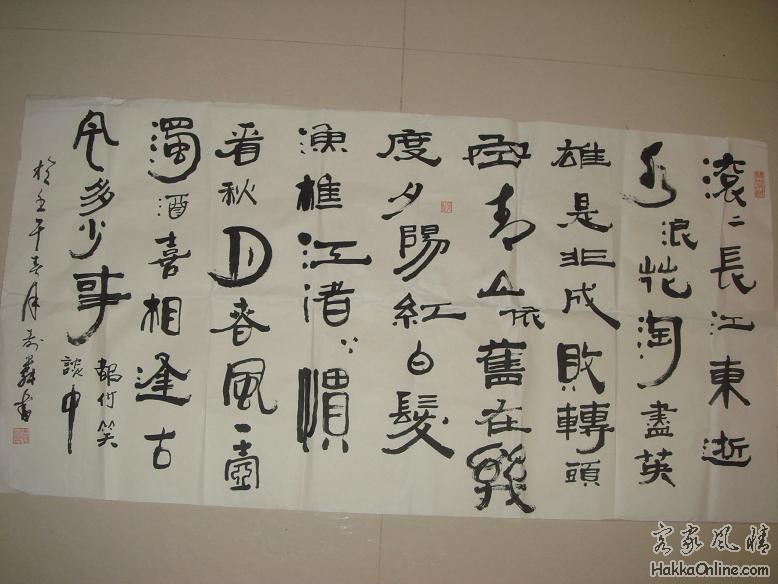 滚二長江東逝
水浪花淘盡英
雄是非成敗轉頭
空青山依舊在幾
度夕陽紅白髮
漁樵江渚上慣
看秋月春風一壺
濁酒喜相逢古
今多少事都付笑
談中
於壬午春月書
客家風情
HakkaOnline.com